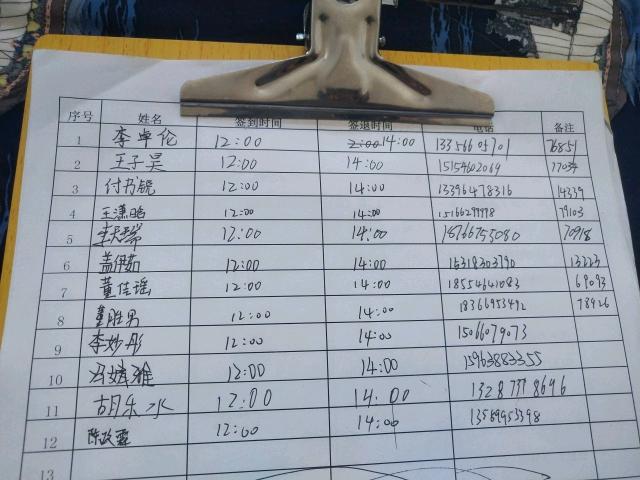 序号 姓名 签到时间 签退时间 电话 备注
1 李卓伦 12:00 2:00 14:00 133566 05701 76851
2 王子昊 12:00 14:00 15154602069
3 付乃锐 12:00 14:00 13396478316 14339
4 王潇晗 12:00 14:00 15166299998 79103
5 李天瑞 12:00 14:00 15766755080 70918
6 盖伊茹 12:00 14:00 15318303790 13223
7 董佳瑶 12:00 14:00 18554641083 69093
8 董胜男 12:00 14:00 18366953492 78926
9 李妙彤 12:00 14:00 15066079073
10 冯婧雅 12:00 14:00 15963883355
11 胡乐水 12:00 14:00 13287778696
12 陈政霖 12:00 14:00 13589953398
13